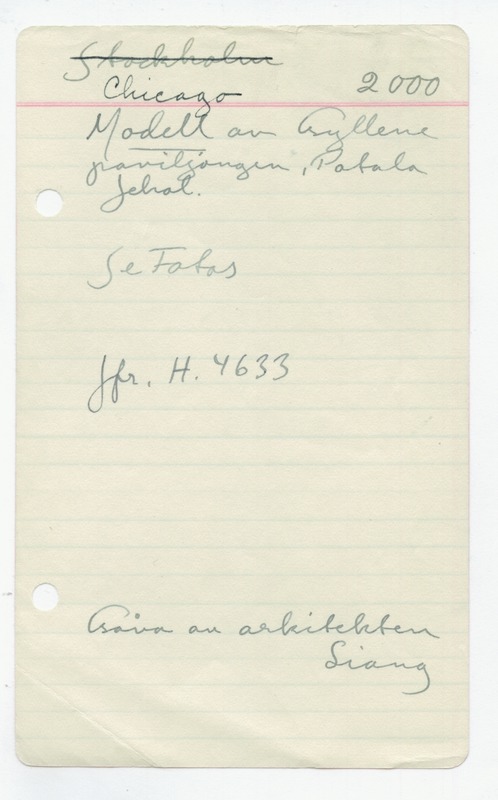 Stockholm
Chicago 2000
Modell av Gyllene
paviljongen, Potala
Jehol.
Se Fotos
Jfr. H. 4633
Gåva av arkitekten
Liang